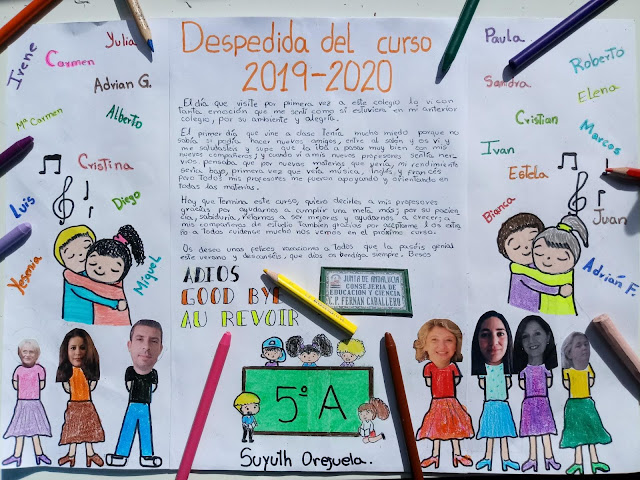 Irene
Carmen
Yulia
Adrian G.
Mª Carmen
Alberto
Cristina
Luis
Diego
Yesenia
Miguel
Despedida del curso
2019-2020
El día que visite por primera vez a este colegio lo vi con
tanta emoción que me sentí como si estuviera en mi anterior
colegio, por su ambiente y alegría.
El primer día que vine a clase tenía mucho miedo porque no
sabía si podría hacer nuevos amigos, entre al salón y os vi y
me saludasteis y supe que lo iba a pasar muy bien con mis
nuevos compañeros; y cuando vi a mis nuevos profesores sentía ner-
vios, pensaba que por nuevas materias que vería, mi rendimiento
sería bajo, primera vez que vería música, inglés y francés
pero todos mis profesores me fueron apoyando y orientando en
todas las materias.
Hoy que termina este curso, quiero decirles a mis profesores
gracias por ayudarnos a cumplir una meta más; por su pacien
cia, sabiduría, retarnos a ser mejores y ayudarnos a crecer; a
mis compañeros de estudio también gracias por aceptarme los extra
ño a todos vuidamos mucho nos vemos en el próximo curso.
Os deseo unas felices vacaciones a todos que la paséis genial
este verano y descanséis, que dios os bendiga siempre, Besos
ADIOS
GOOD BYE
AU REVOIR
JUNTA DE ANDALUCIA
CONSEJERIA DE
EDUCACION Y CIENCIA
C.P. FERNAN CABALLERO
5º A
Suyuth Orejuela.
Paula
Roberto
Sandra
Elena
Cristian
Marcos
Ivan
Estela
Bianca
Juan
Adrián F.